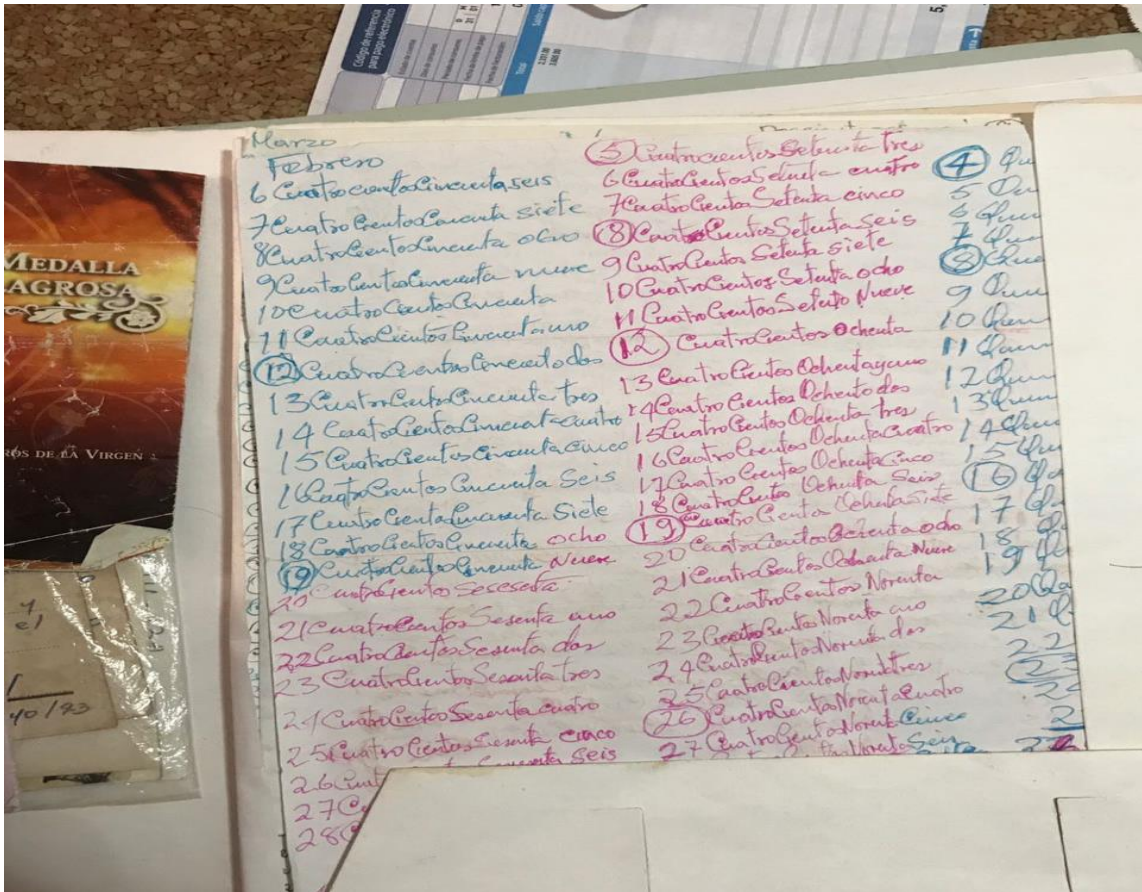 Código de referencia
para pago electrónico
Total
MEDALLA
AGROSA
ROS DE LA VIRGEN
40/93
Marzo
Febrero
6 Cuatrocientos Cincuenta seis
7 Cuatro Cientos Cincuenta siete
8 Cuatro Cientos Cincuenta ocho
9 Cuatro Cientos Cincuenta nueve
10 Cuatro Cientos Cincuenta
11 Cuatro Cientos Cincuenta uno
12 Cuatro Cientos Cincuenta dos
13 Cuatro Cientos Cincuenta tres
14 Cuatro Cientos Cincuenta cuatro
15 Cuatro Cientos Cincuenta Cinco
16 Cuatro Cientos Cincuenta Seis
17 Cuatro Cientos Cincuenta Siete
18 Cuatro Cientos Cincuenta ocho
19 Cuatro Cientos Cincuenta Nueve
20 Cuatro Cientos Sesenta
21 Cuatro Cientos Sesenta uno
22 Cuatro Cientos Sesenta dos
23 Cuatro Cientos Sesenta tres
24 Cuatro Cientos Sesenta cuatro
25 Cuatro Cientos Sesenta cinco
26 Cuat seis
27 C
28 C
5 Cuatrocientos Setenta Tres
6 Cuatro Cientos Setenta cuatro
7 Cuatro Cientos Setenta cinco
8 Cuatro Cientos Setenta seis
9 Cuatro Cientos Setenta siete
10 Cuatro Cientos Setenta ocho
11 Cuatro Cientos Setenta Nueve
12 Cuatro Cientos Ochenta
13 Cuatro Cientos Ochenta y uno
14 Cuatro Cientos Ochenta dos
15 Cuatro Cientos Ochenta tres
16 Cuatro Cientos Ochenta Cuatro
17 Cuatro Cientos Ochenta Cinco
18 Cuatro Cientos Ochenta Seis
19 Cuatro Cientos Ochenta Siete
20 Cuatro Cientos Ochenta ocho
21 Cuatro Cientos Ochenta Nueve
22 Cuatro Cientos Noventa
23 Cuatro Cientos Noventa uno
24 Cuatro Cientos Noventa dos
25 Cuatro Cientos Noventa Tres
26 Cuatro Cientos Noventa Cuatro
27 Cuatro Cientos Noventa Cinco
Noventa Seis
4 Qu
5 Qu
6 Quin
7 Quin
8 Quin
9 Quin
10 Quin
11 Quin
12 Quin
13 Quin
14 Quin
15 Qui
16 Qu
17 Qu
18 Q
19 Q
20 Qu
21 Q
22
23